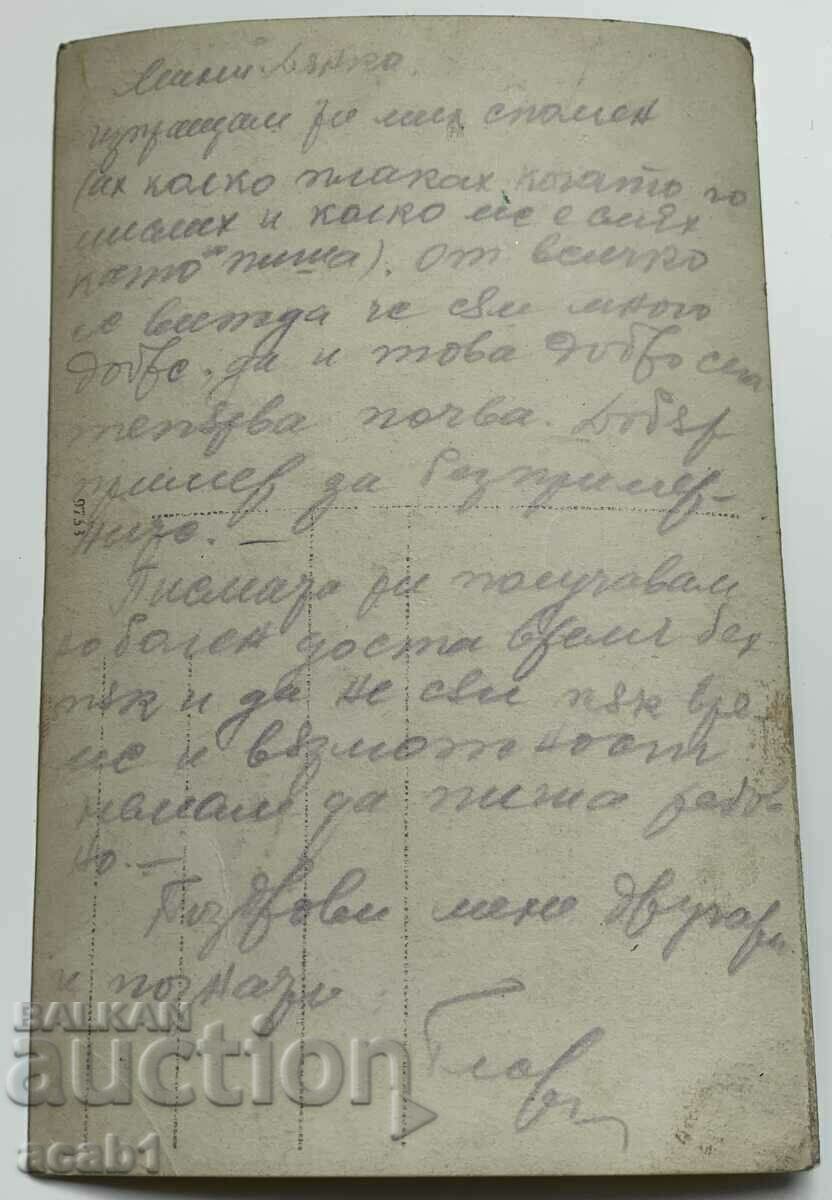 Мили Вѫлко
изпращам ти мил спомен
(ах колко плаках когато го
мислах и колко ме е смях
като пиша). От всичко
се вижда че съм много
добре, да и това добро сега
тепѫрва почва. Добѫр
пример да безпример-
ница. —
Писмата ти получавам
но болен доста време бех
пѫк и да не сѫм пѫк вре
ме и вѫзможност
немам да пиша редов
но. —
Поздрови мене другари
и познати
BALKAN
auction
acab1